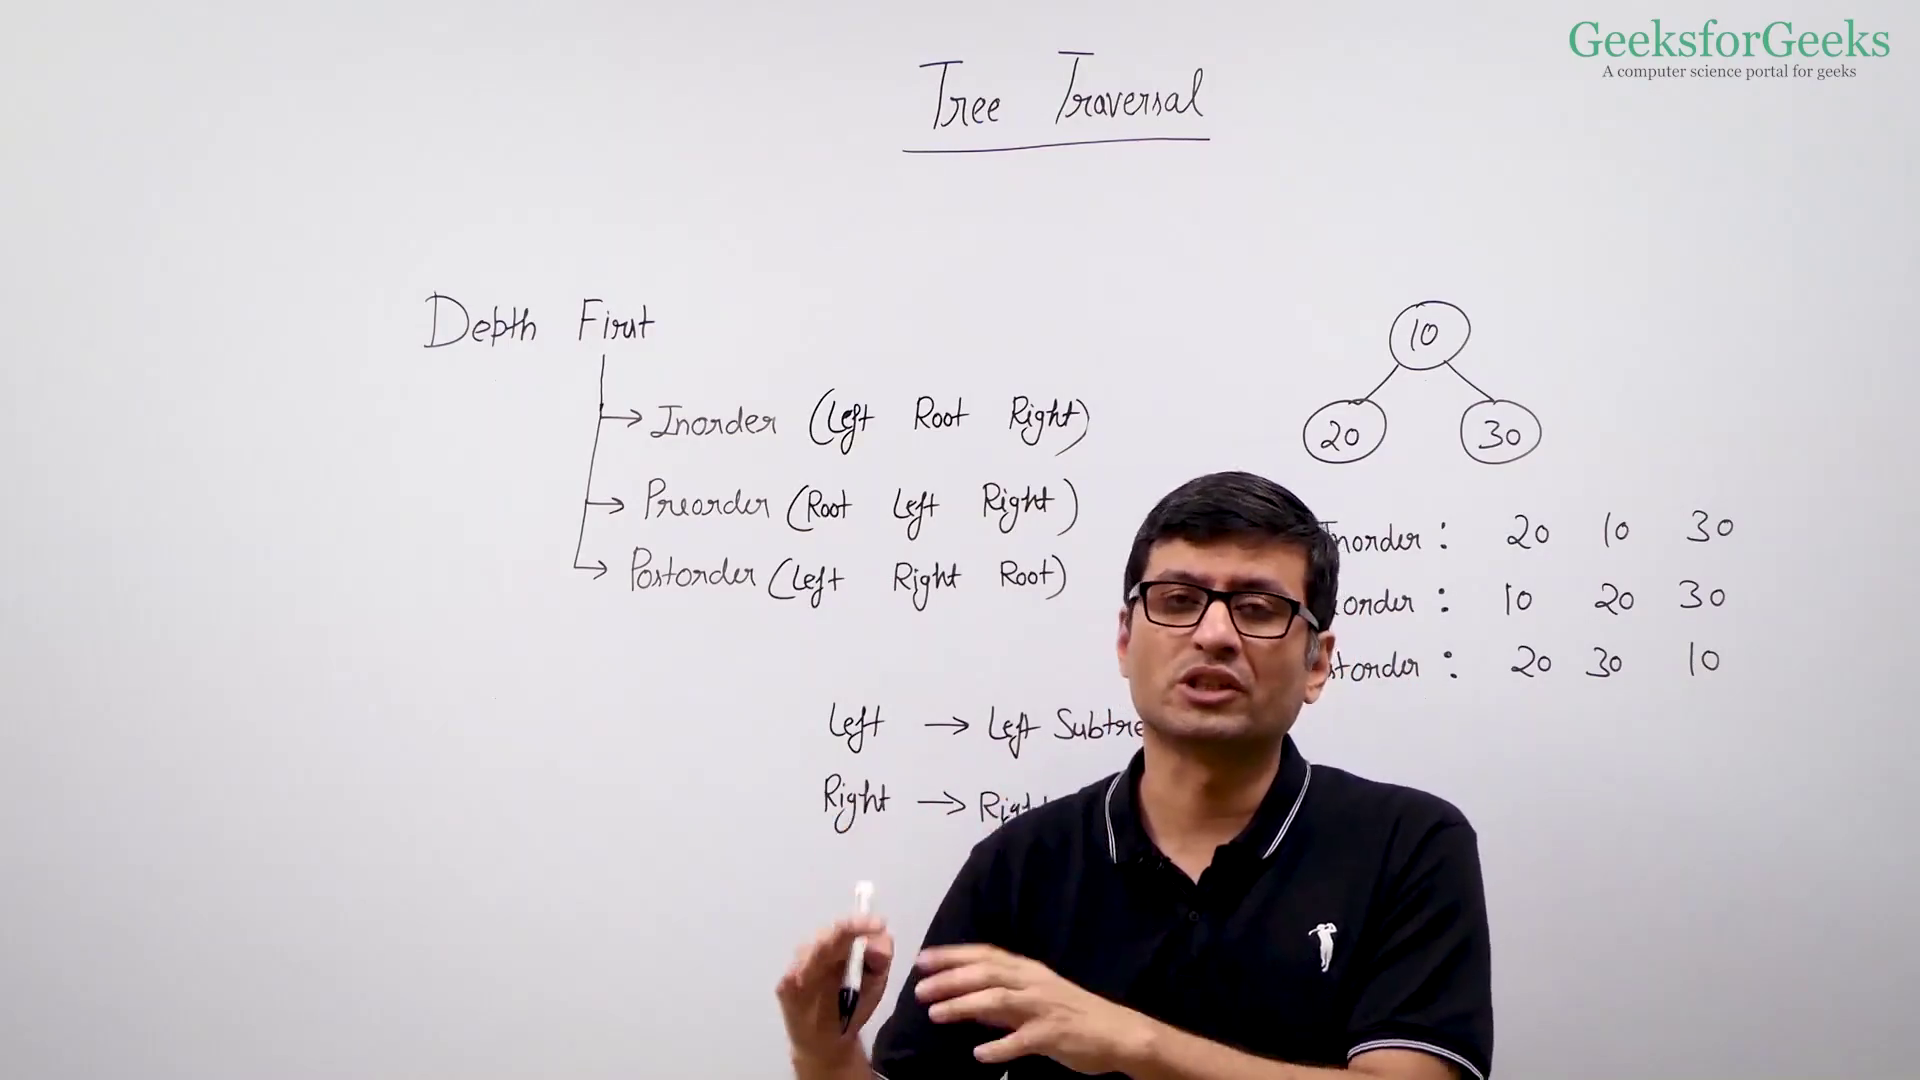 GeeksforGeeks
A computer science portal for geeks
Tree Traversal
Depth First
Inorder (Left Root Right)
Preorder (Root Left Right)
Postorder (Left Right Root)
Left → Left Subtre
Right →
10
20 30
norder : 20 10 30
order : 10 20 30
storder : 20 30 10